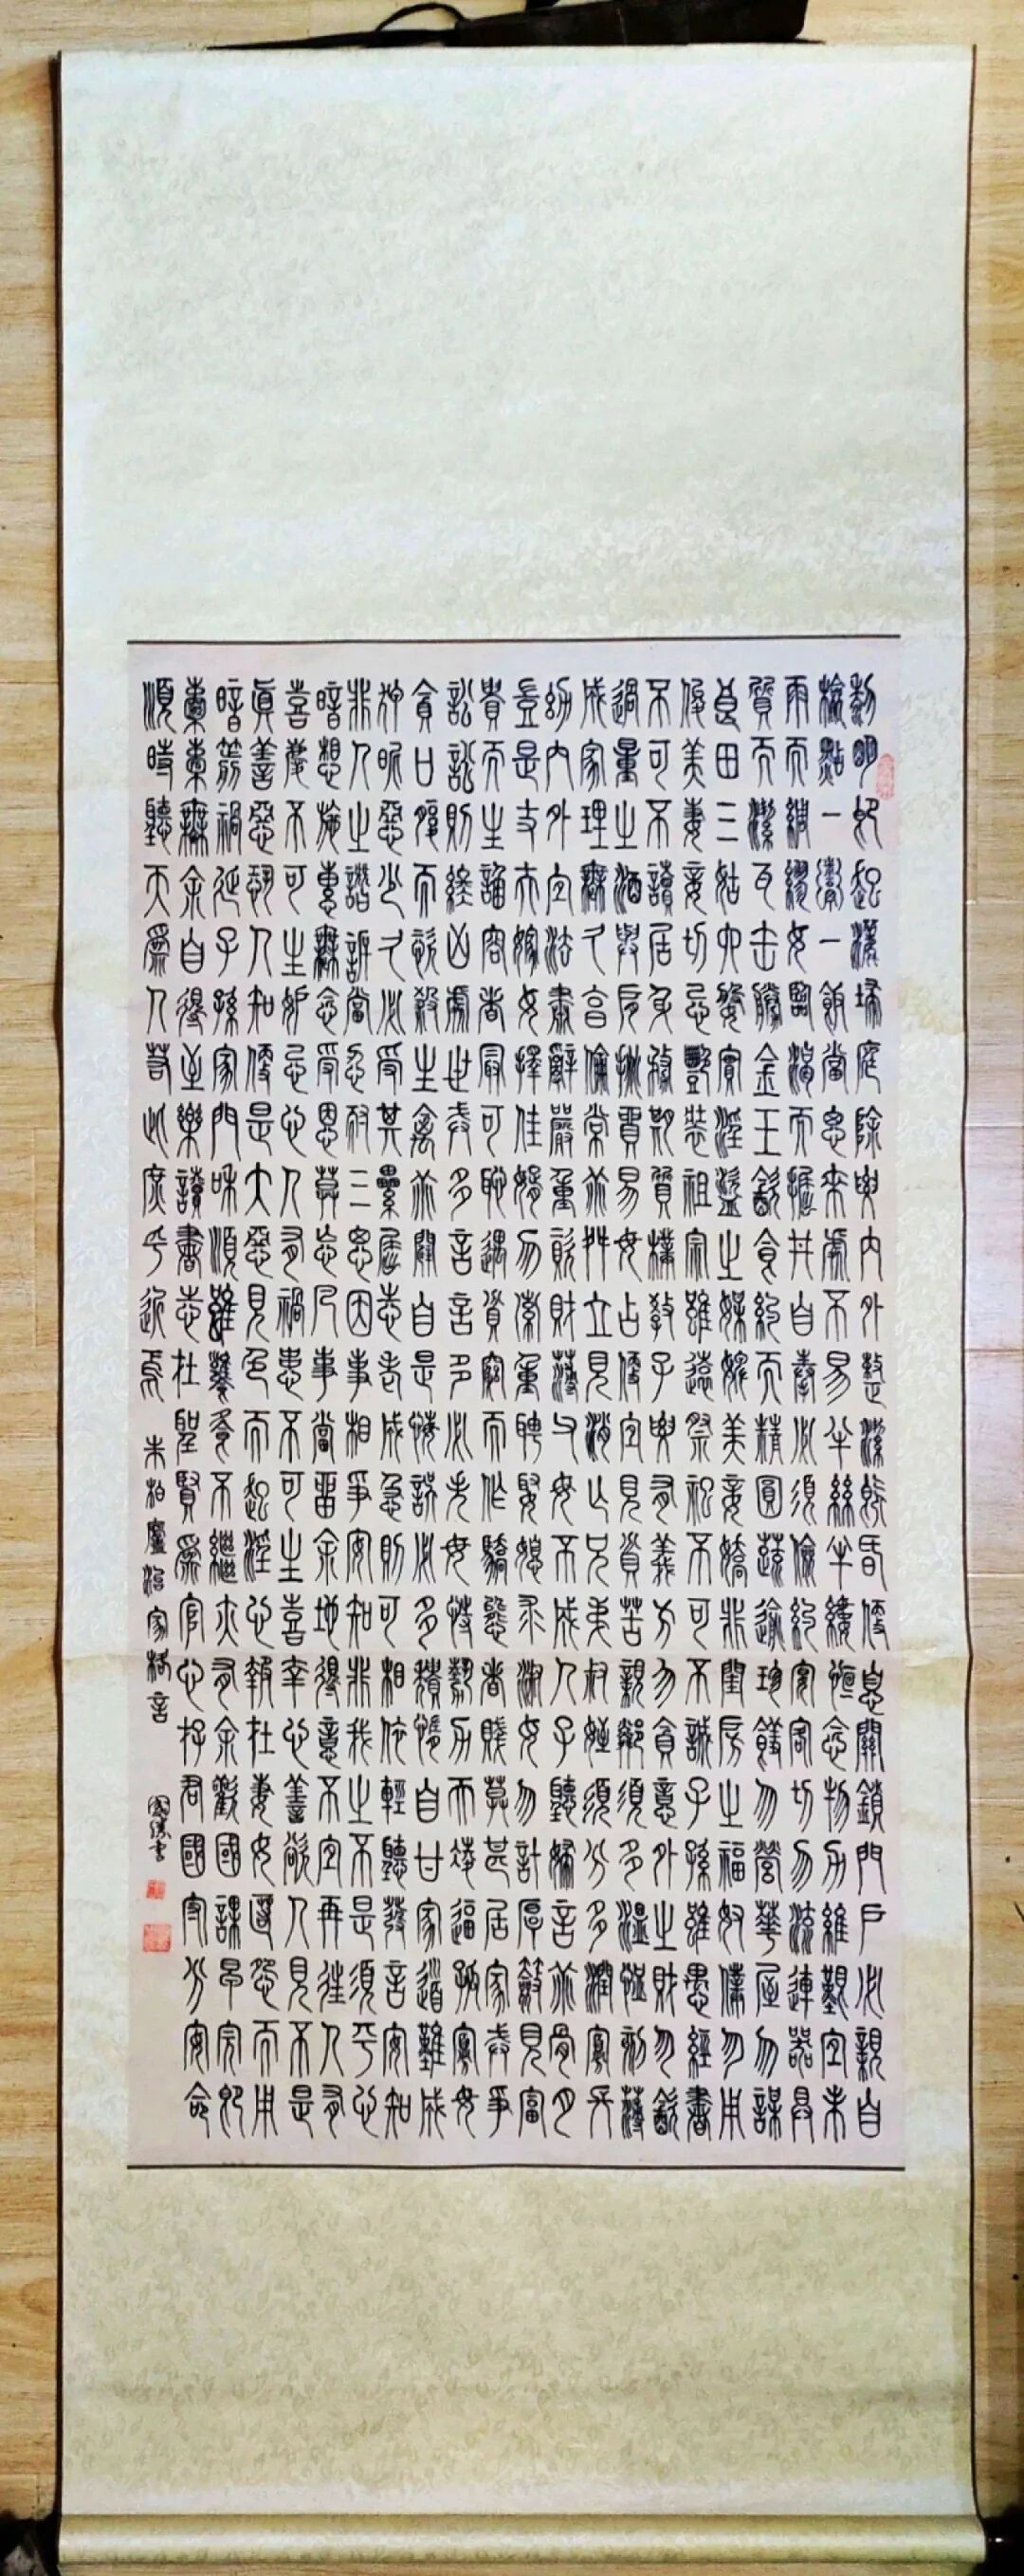 黎明即起灑掃庭除要內外整潔既昏便息關鎖門戶必親自
檢點一粥一飯當思來處不易半絲半縷恆念物力維艱宜未
雨而綢繆毋臨渴而掘井自奉必須儉約宴客切勿流連器具
質而潔瓦缶勝金玉飲食約而精園蔬逾珍饈勿營華屋勿謀
良田三姑六婆實淫盜之媒婢美妾嬌非閨房之福奴僕勿用
俊美妻妾切忌艷裝祖宗雖遠祭祀不可不誠子孫雖愚經書
不可不讀居身務期質樸教子要有義方勿貪意外之財勿飲
過量之酒與肩挑貿易毋占便宜見貧苦親鄰須多溫恤刻薄
成家理無久享倫常乖舛立見消亡兄弟叔姪須分多潤寡長
幼內外宜法肅辭嚴重貲財薄父母不成人子聽婦言乖骨肉
豈是丈夫嫁女擇佳婿勿索重聘娶媳求淑女勿計厚奩見富
貴而生諂容者最可恥遇貧窮而作驕態者賤莫甚居家戒爭
訟訟則終凶處世戒多言言多必失毋恃勢力而凌逼孤寡毋
貪口腹而恣殺生禽乖僻自是悔誤必多頹惰自甘家道難成
狎昵惡少久必受其累屈志老成急則可相依輕聽發言安知
非人之譖訴當忍耐三思因事相爭安知非我之不是須平心
暗想施惠無念受恩莫忘凡事當留余地得意不宜再往人有
喜慶不可生妒忌心人有禍患不可生喜幸心善欲人見不是
真善惡恐人知便是大惡見色而起淫心報在妻女匿怨而用
暗箭禍延子孫家門和順雖饔飧不繼亦有余歡國課早完即
囊橐無余自得至樂讀書志在聖賢為官心存君國守分安命
順時聽天為人若此庶乎近焉 朱柏廬治家格言